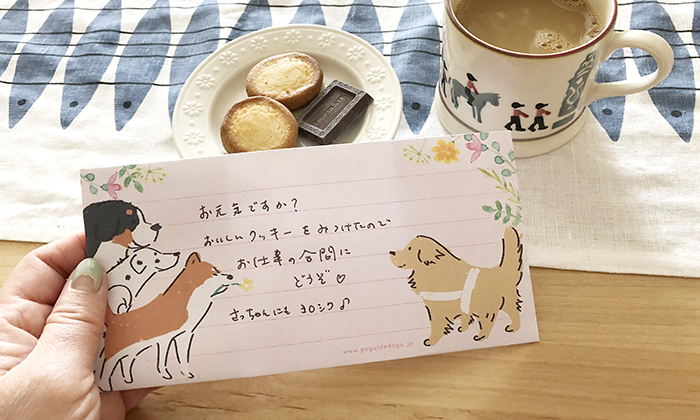 お元気ですか?
おいしいクッキーをみつけたので
お仕事の合間に
どうぞ♡
さっちゃんにもヨロシク♪
www.goguidedogs.jp